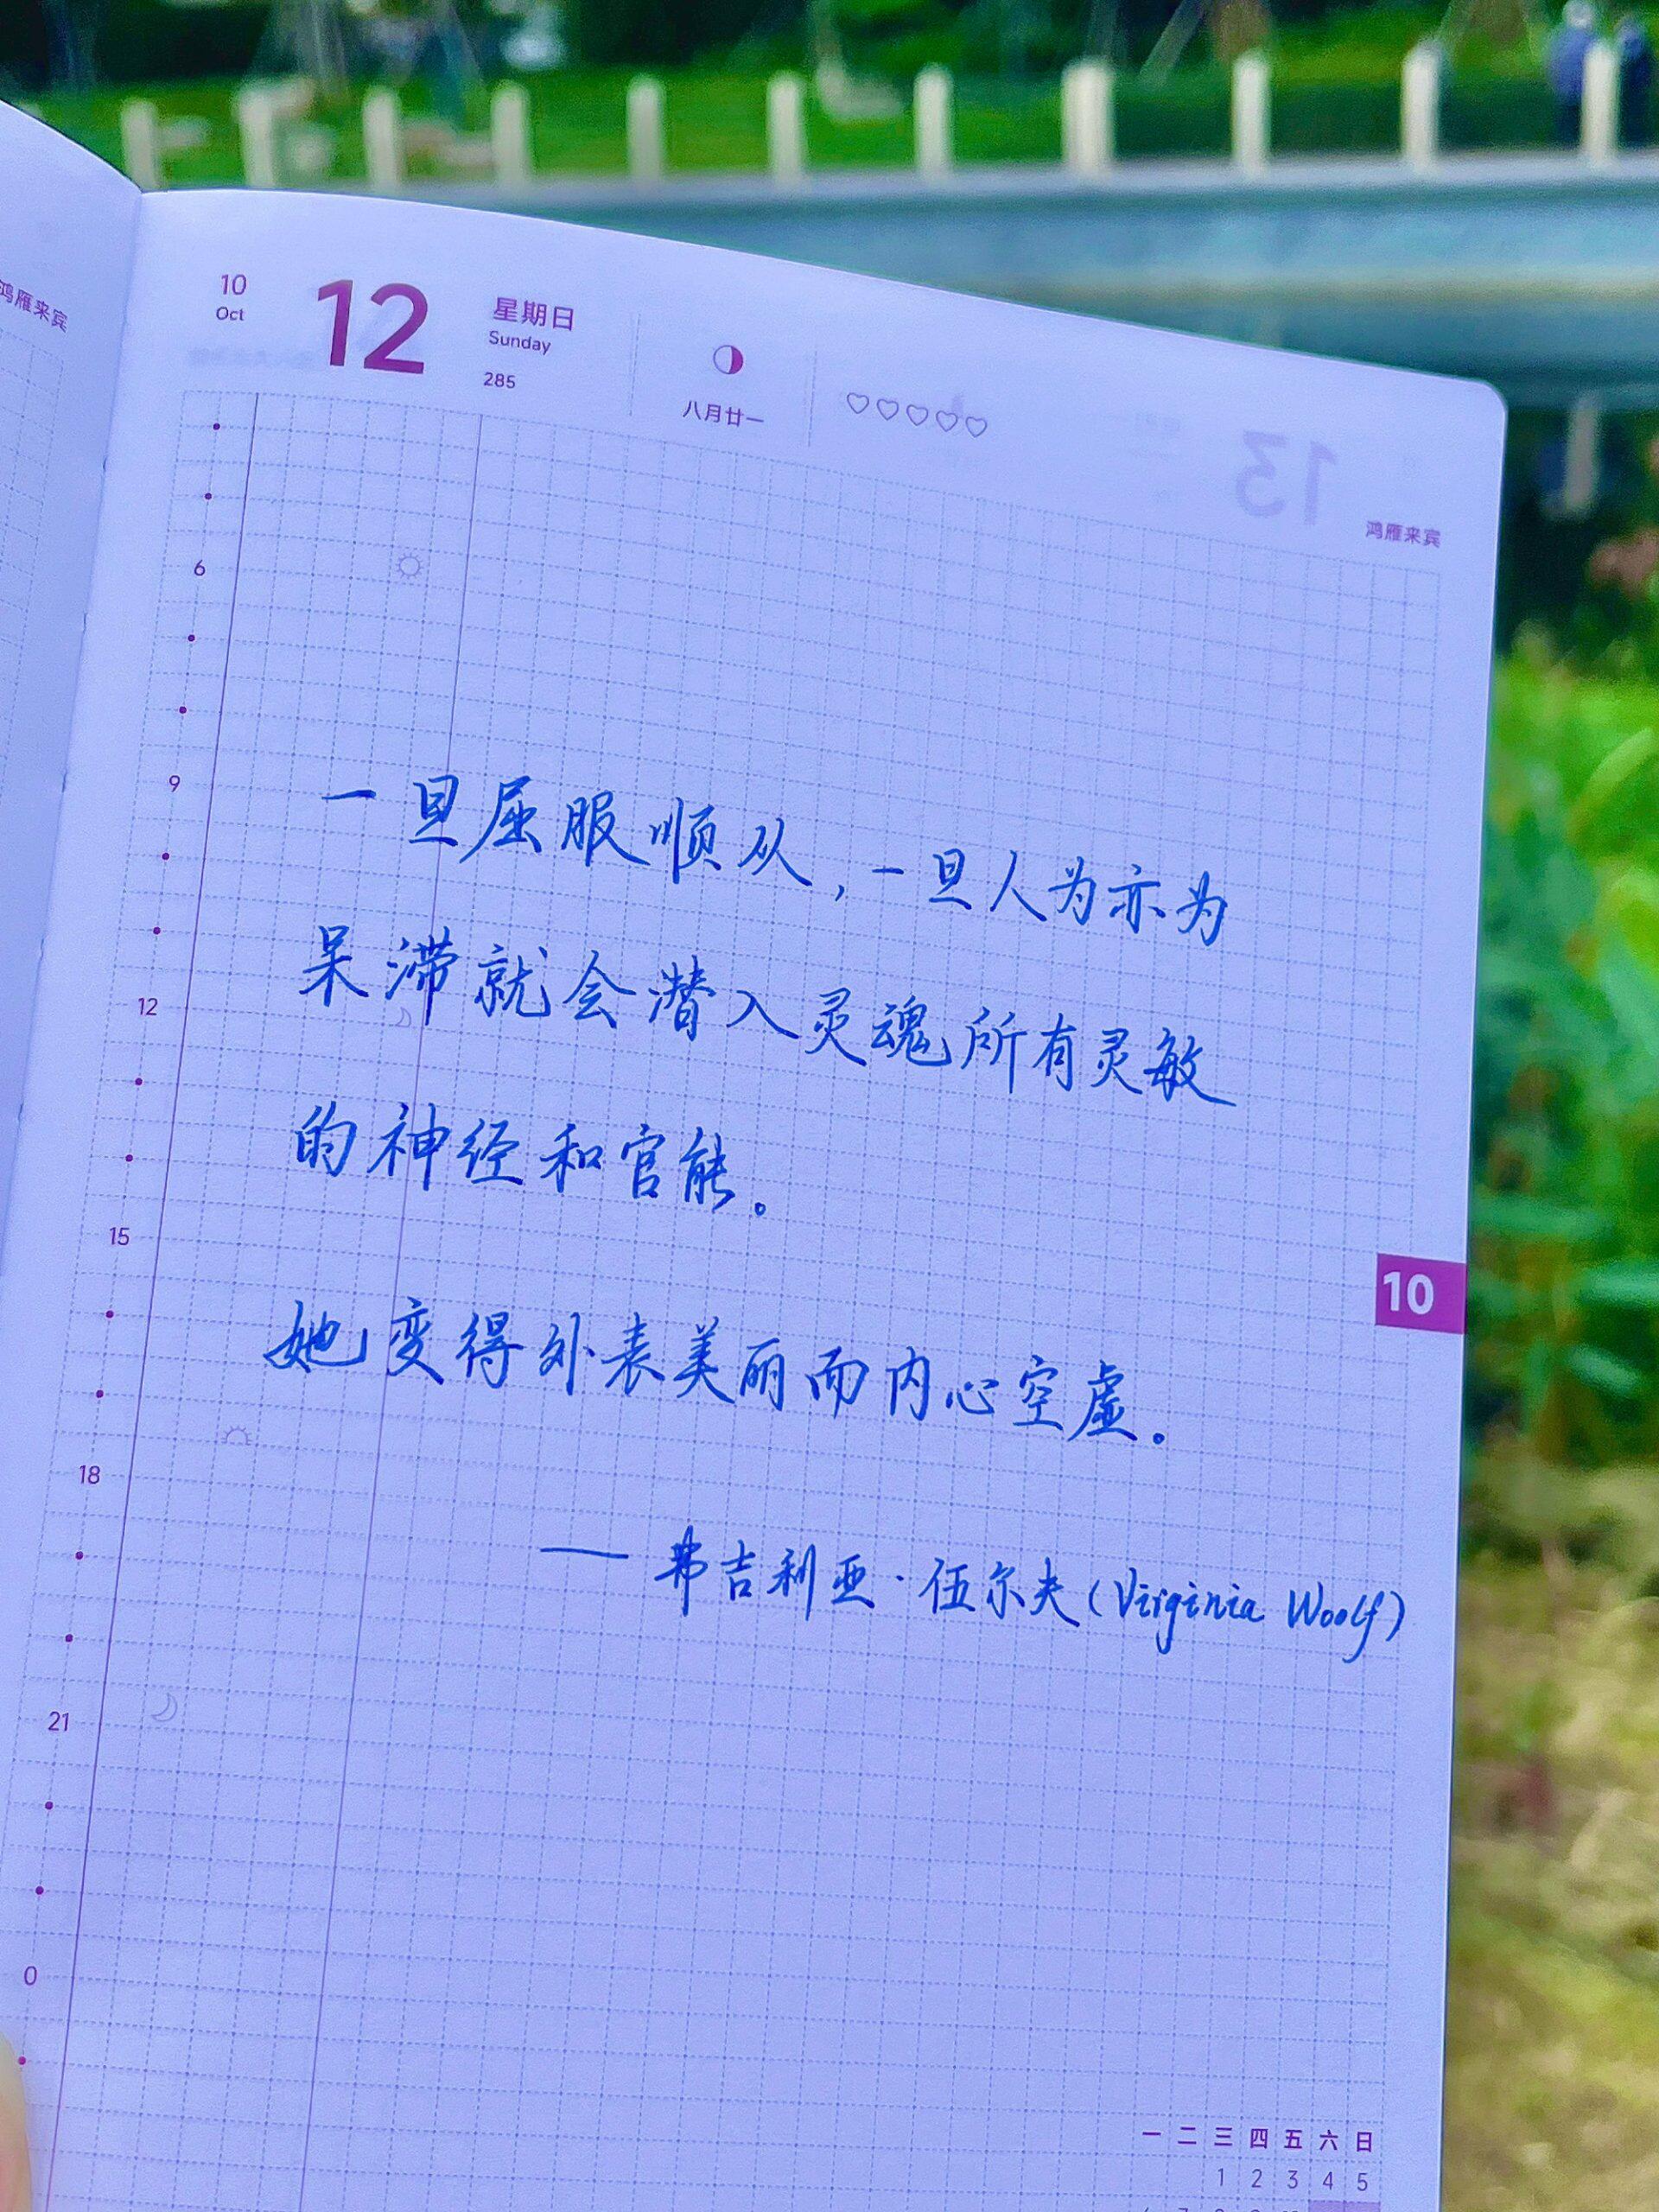 鸿雁来宾
10
Oct
12
星期日
Sunday
285
八月廿一
13
鸿雁来宾
6
9
12
15
18
21
0
一旦屈服顺从，一旦人为亦为
呆滞就会潜入灵魂所有灵敏
的神经和官能。
她变得外表美丽而内心空虚。
——弗吉利亚·伍尔夫(Virginia Woolf)
10
一 二 三 四 五 六 日
1 2 3 4 5